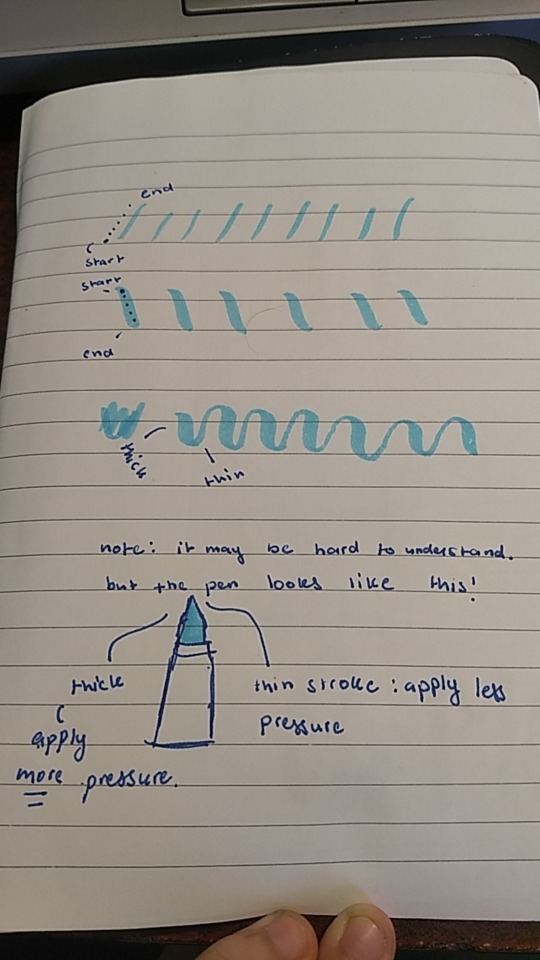 end
start
start
end
thick
thin
note: it may be hard to understand.
but the pen looks like this!
thick
thin stroke : apply less
pressure
apply
more pressure.